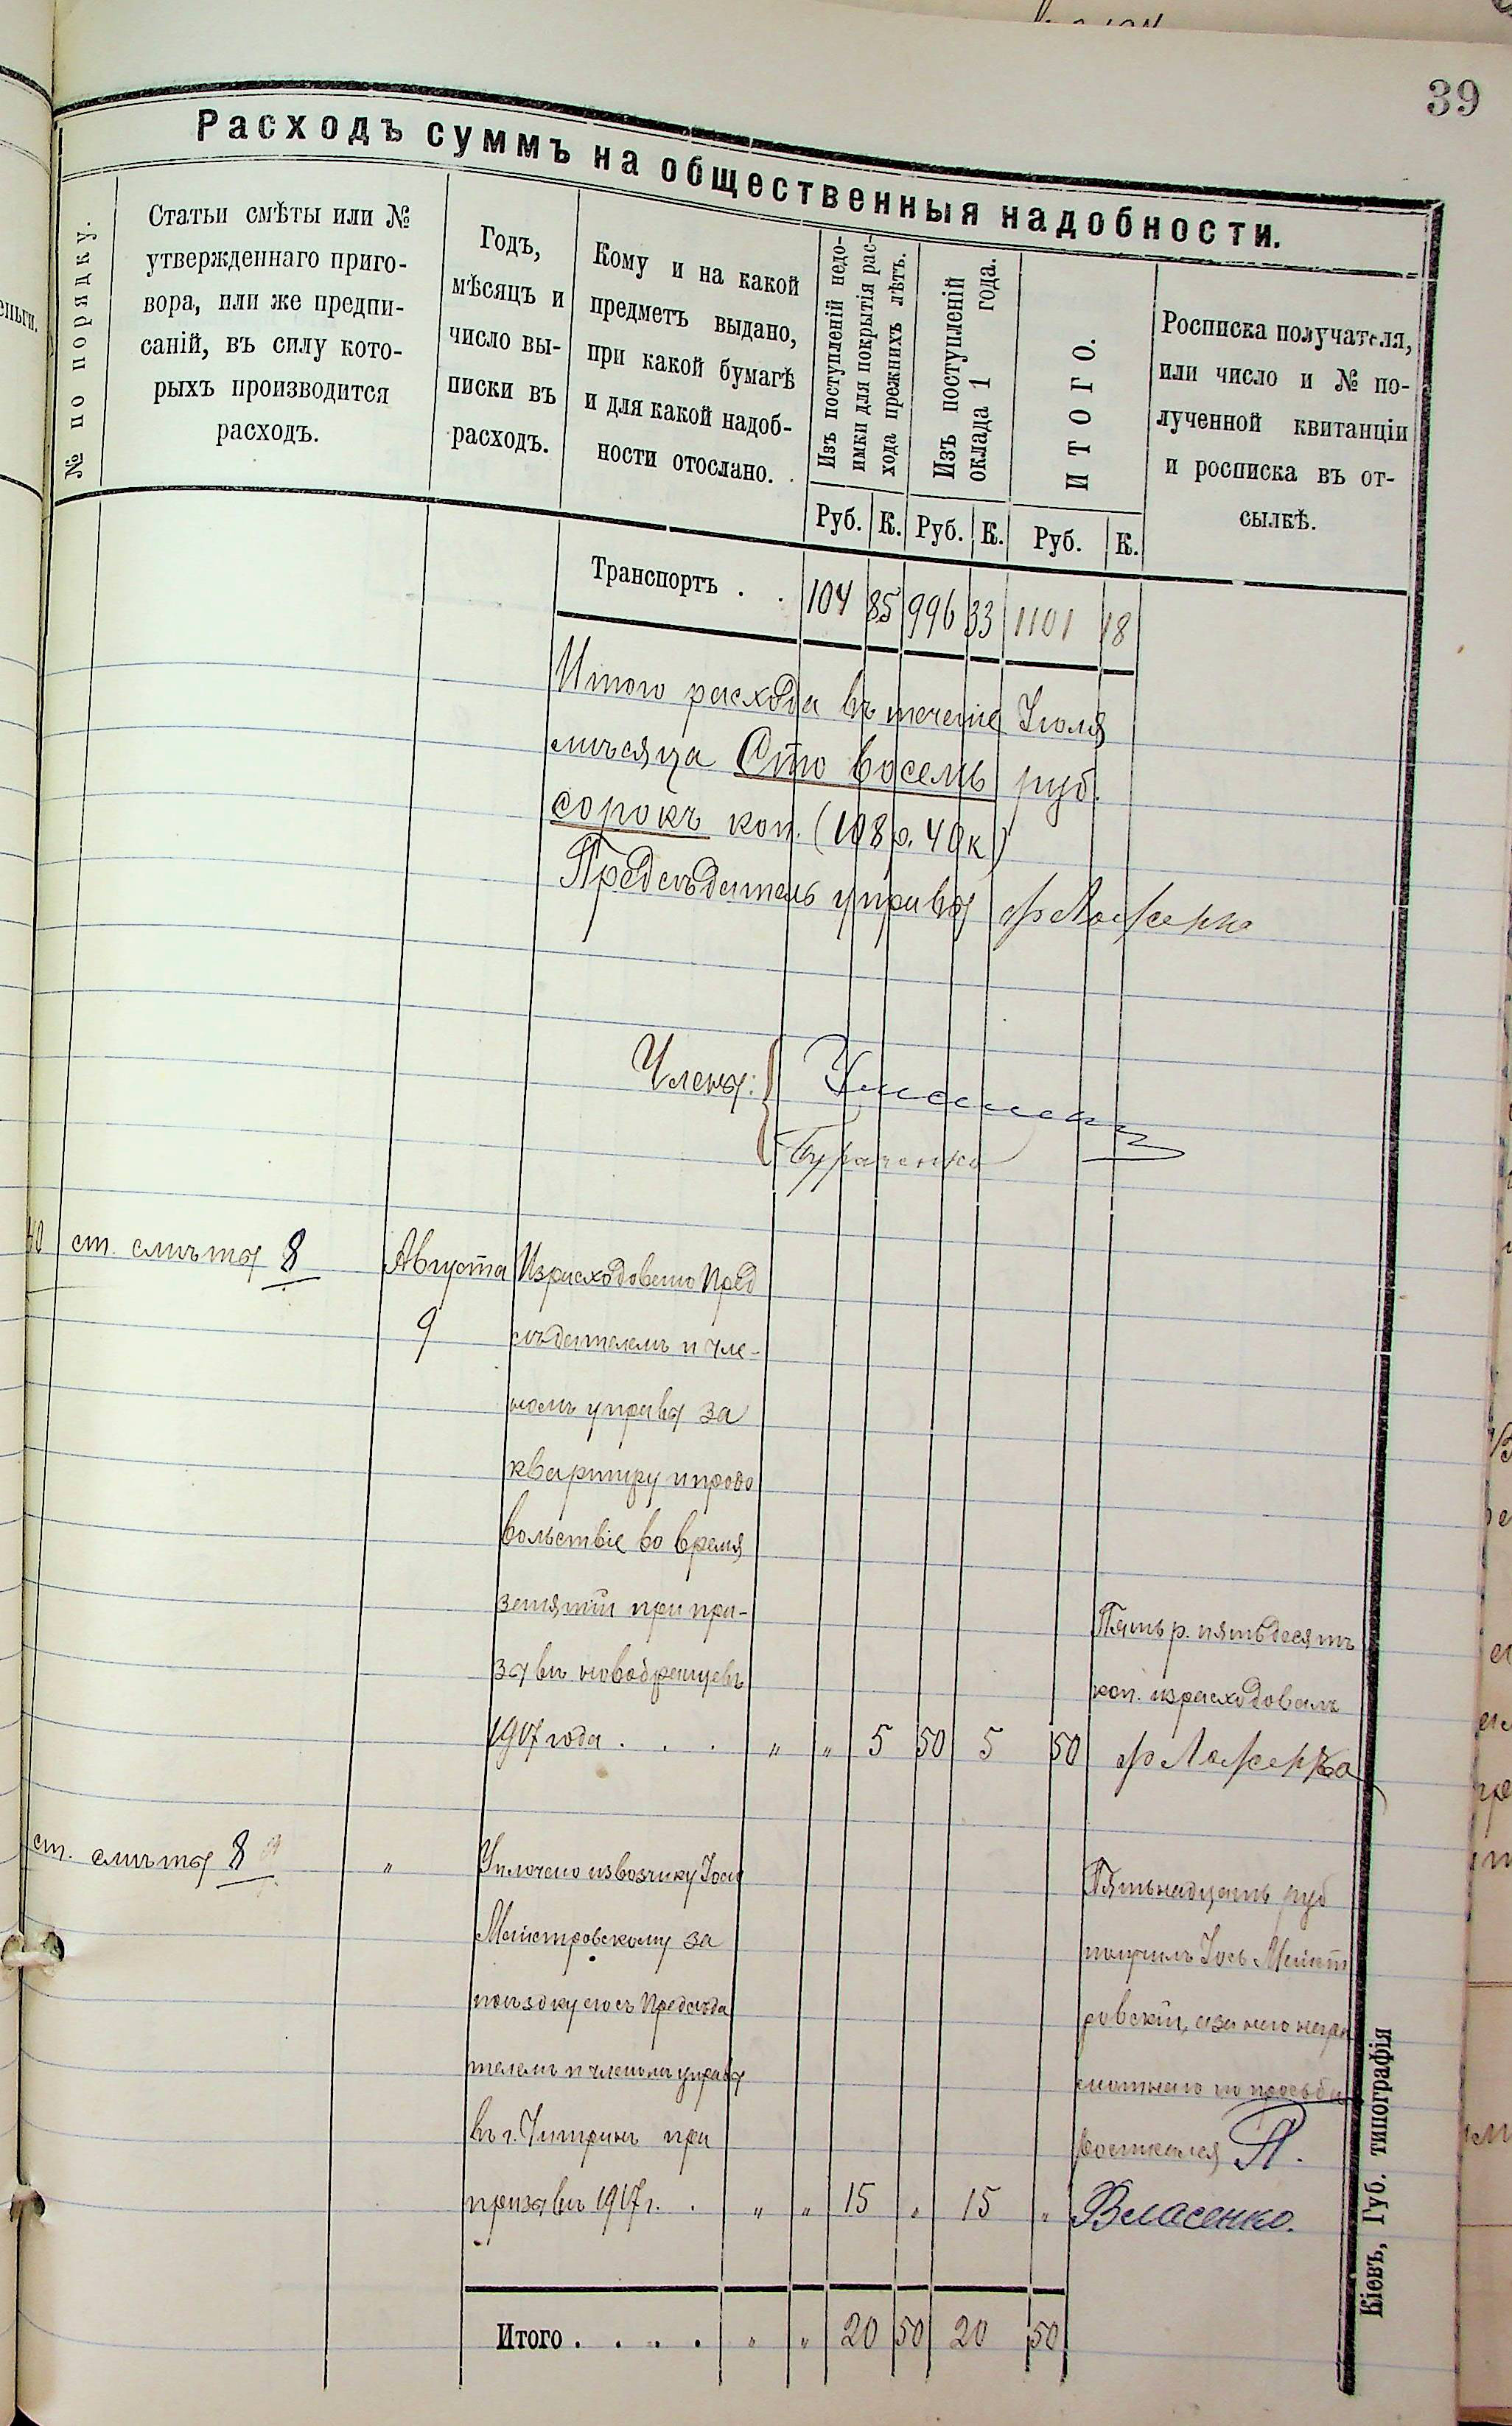 39
Расходъ суммъ на общественныя надобности.
№ по порядку.
Статьи смѣты или №
утвержденнаго приго-
вора, или же предпи-
саній, въ силу кото-
рыхъ производится
расходъ.
Годъ,
мѣсяцъ и
число вы-
писки въ
расходъ.
Кому и на какой
предметъ выдано,
при какой бумагѣ
и для какой надоб-
ности отослано.
Изъ поступленій недо-
имки для покрытія рас-
хода прежнихъ лѣтъ.
Изъ поступленій
оклада 1 года.
ИТОГО.
Росписка получателя,
или число и № по-
лученной квитанціи
и росписка въ от-
сылкѣ.
Руб. К. Руб. К. Руб. К.
Транспортъ . . 104 85 996 33 1101 18
Итого расхода въ теченіе Іюля
мѣсяца Сто восемь руб.
сорокъ коп. (108 р. 40 к)
Предсѣдатель управы
Члены:
40 ст. смѣты 8 Августа Израсходовано Пред
9 сѣдателемъ и чле-
номъ управы за
квартиру и продо
вольствіе во время
занятій при при-
зывѣ новобранцевъ
1917 года . . . „ „ 5 50 5 50
Пять р. пятьдесятъ
коп. израсходовалъ
ст. смѣты 8 „ Уплочено извозчику Іосю
Мейстровскому за
поѣздку его съ Предсѣда
телемъ и членомъ управы
въ г. Чигринъ при
призывѣ 1917 г. . „ „ 15 „ 15 „
Пятьнадцать руб
получилъ Іось Мейст
ровскій, а за него негра
мотнаго по просьбѣ
росписался П.
Власенко.
Итого . . . . „ „ 20 50 20 50
Кіевъ, Губ. типографія